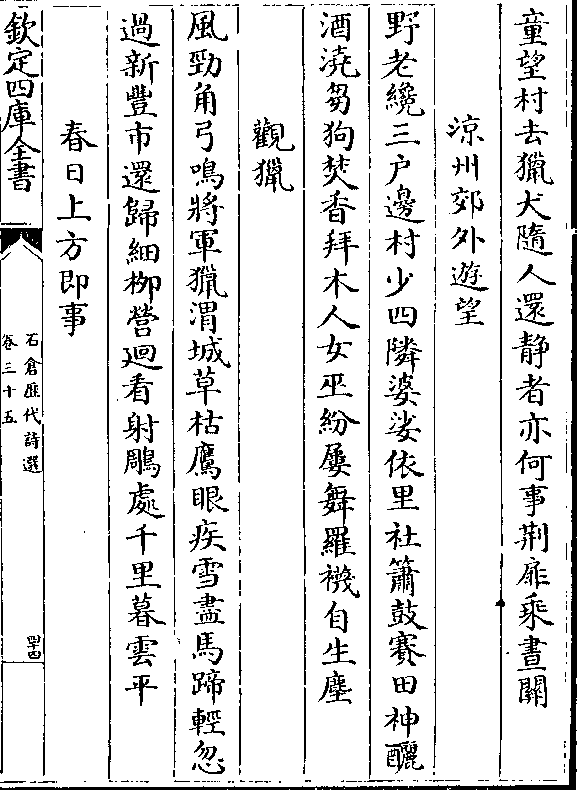 童望村去獵犬隨人還静者亦何事荆扉乗晝關
涼州郊外遊望
野老纔三户邊村少四隣婆娑依里社簫鼓賽田神釃
酒澆芻狗焚香拜木人女巫紛屢舞羅襪自生塵
觀獵
風勁角弓鳴將軍獵渭城草枯鷹眼疾雪盡馬蹄輕忽
過新豐市還歸細栁營迴看射鵰處千里暮雲平
春日上方即事
欽定四庫全書
石倉歷代詩選
卷三十五
四十四